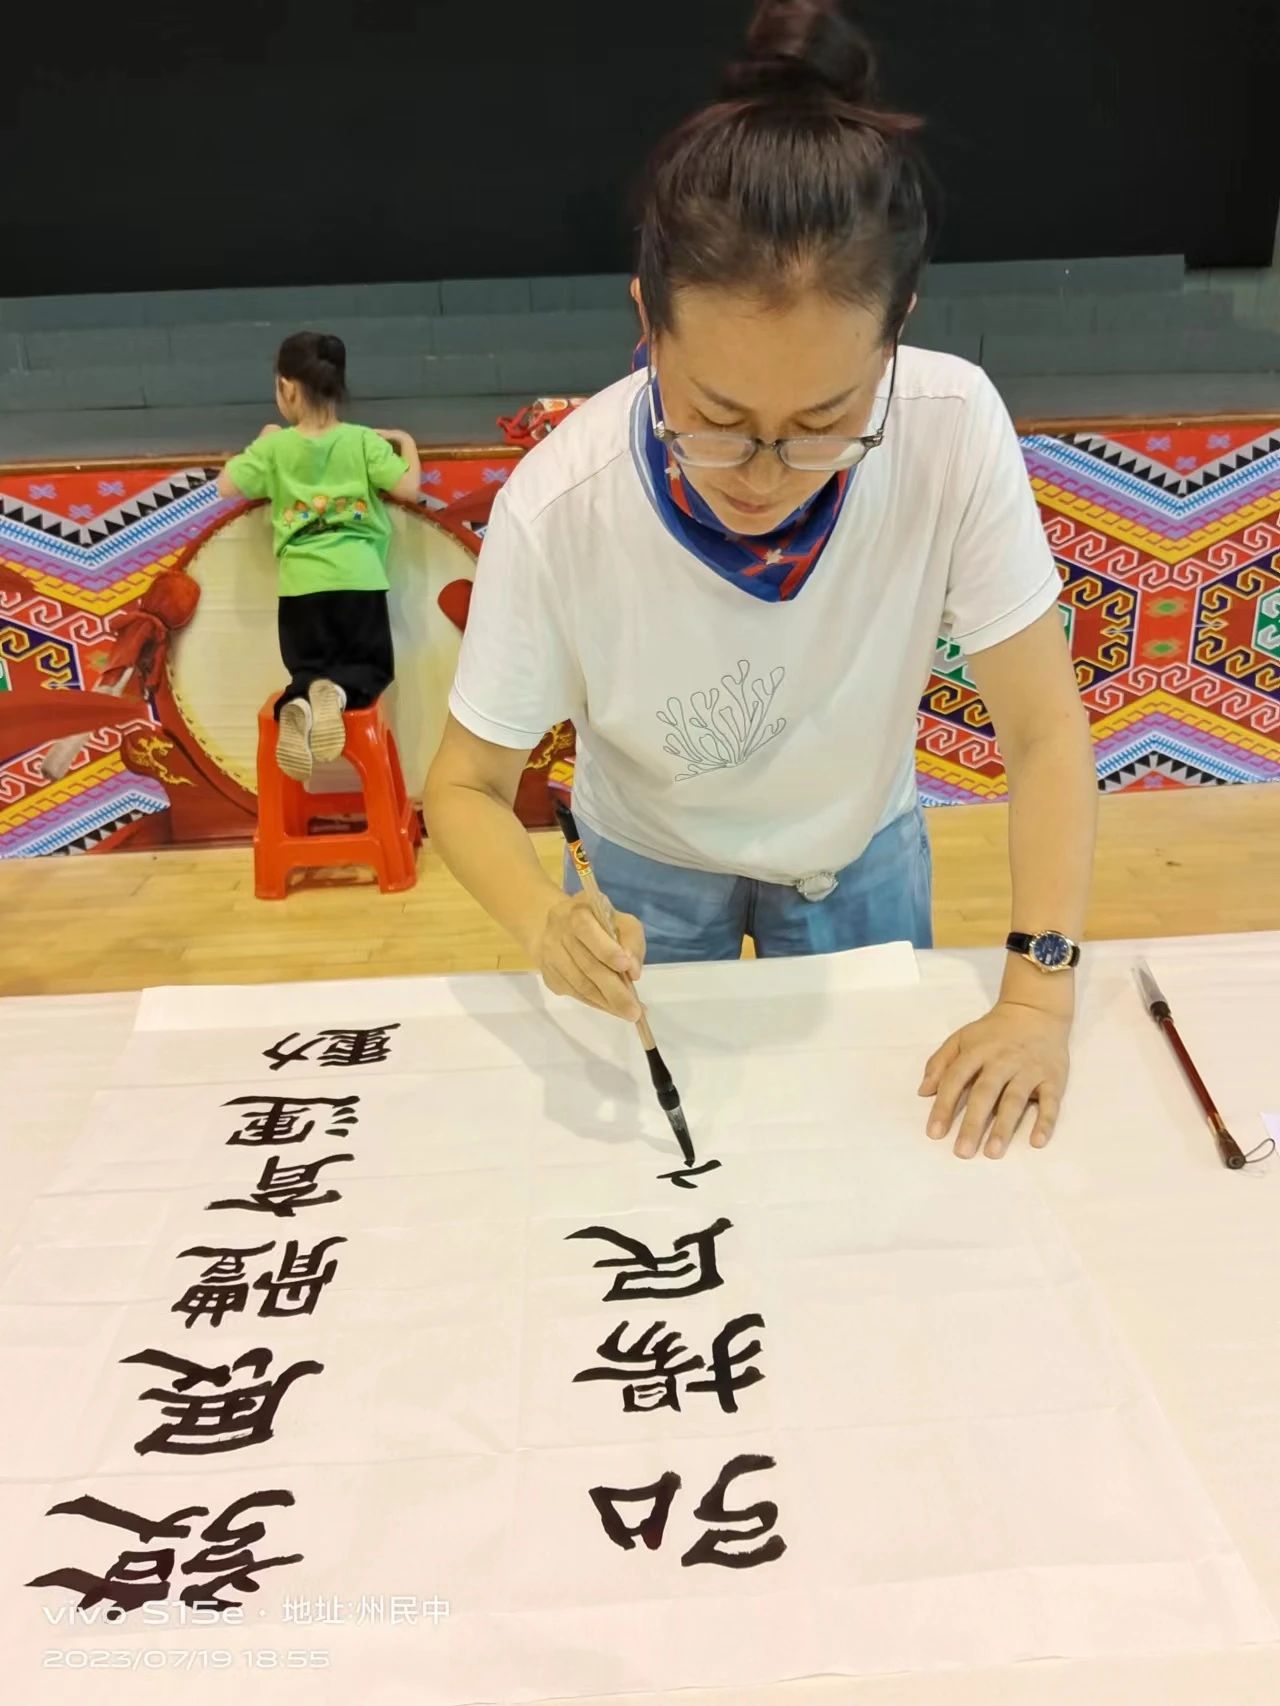 發展體育運動
弘揚民
vivo S15e · 地址:州民中
2023/07/19 18:55